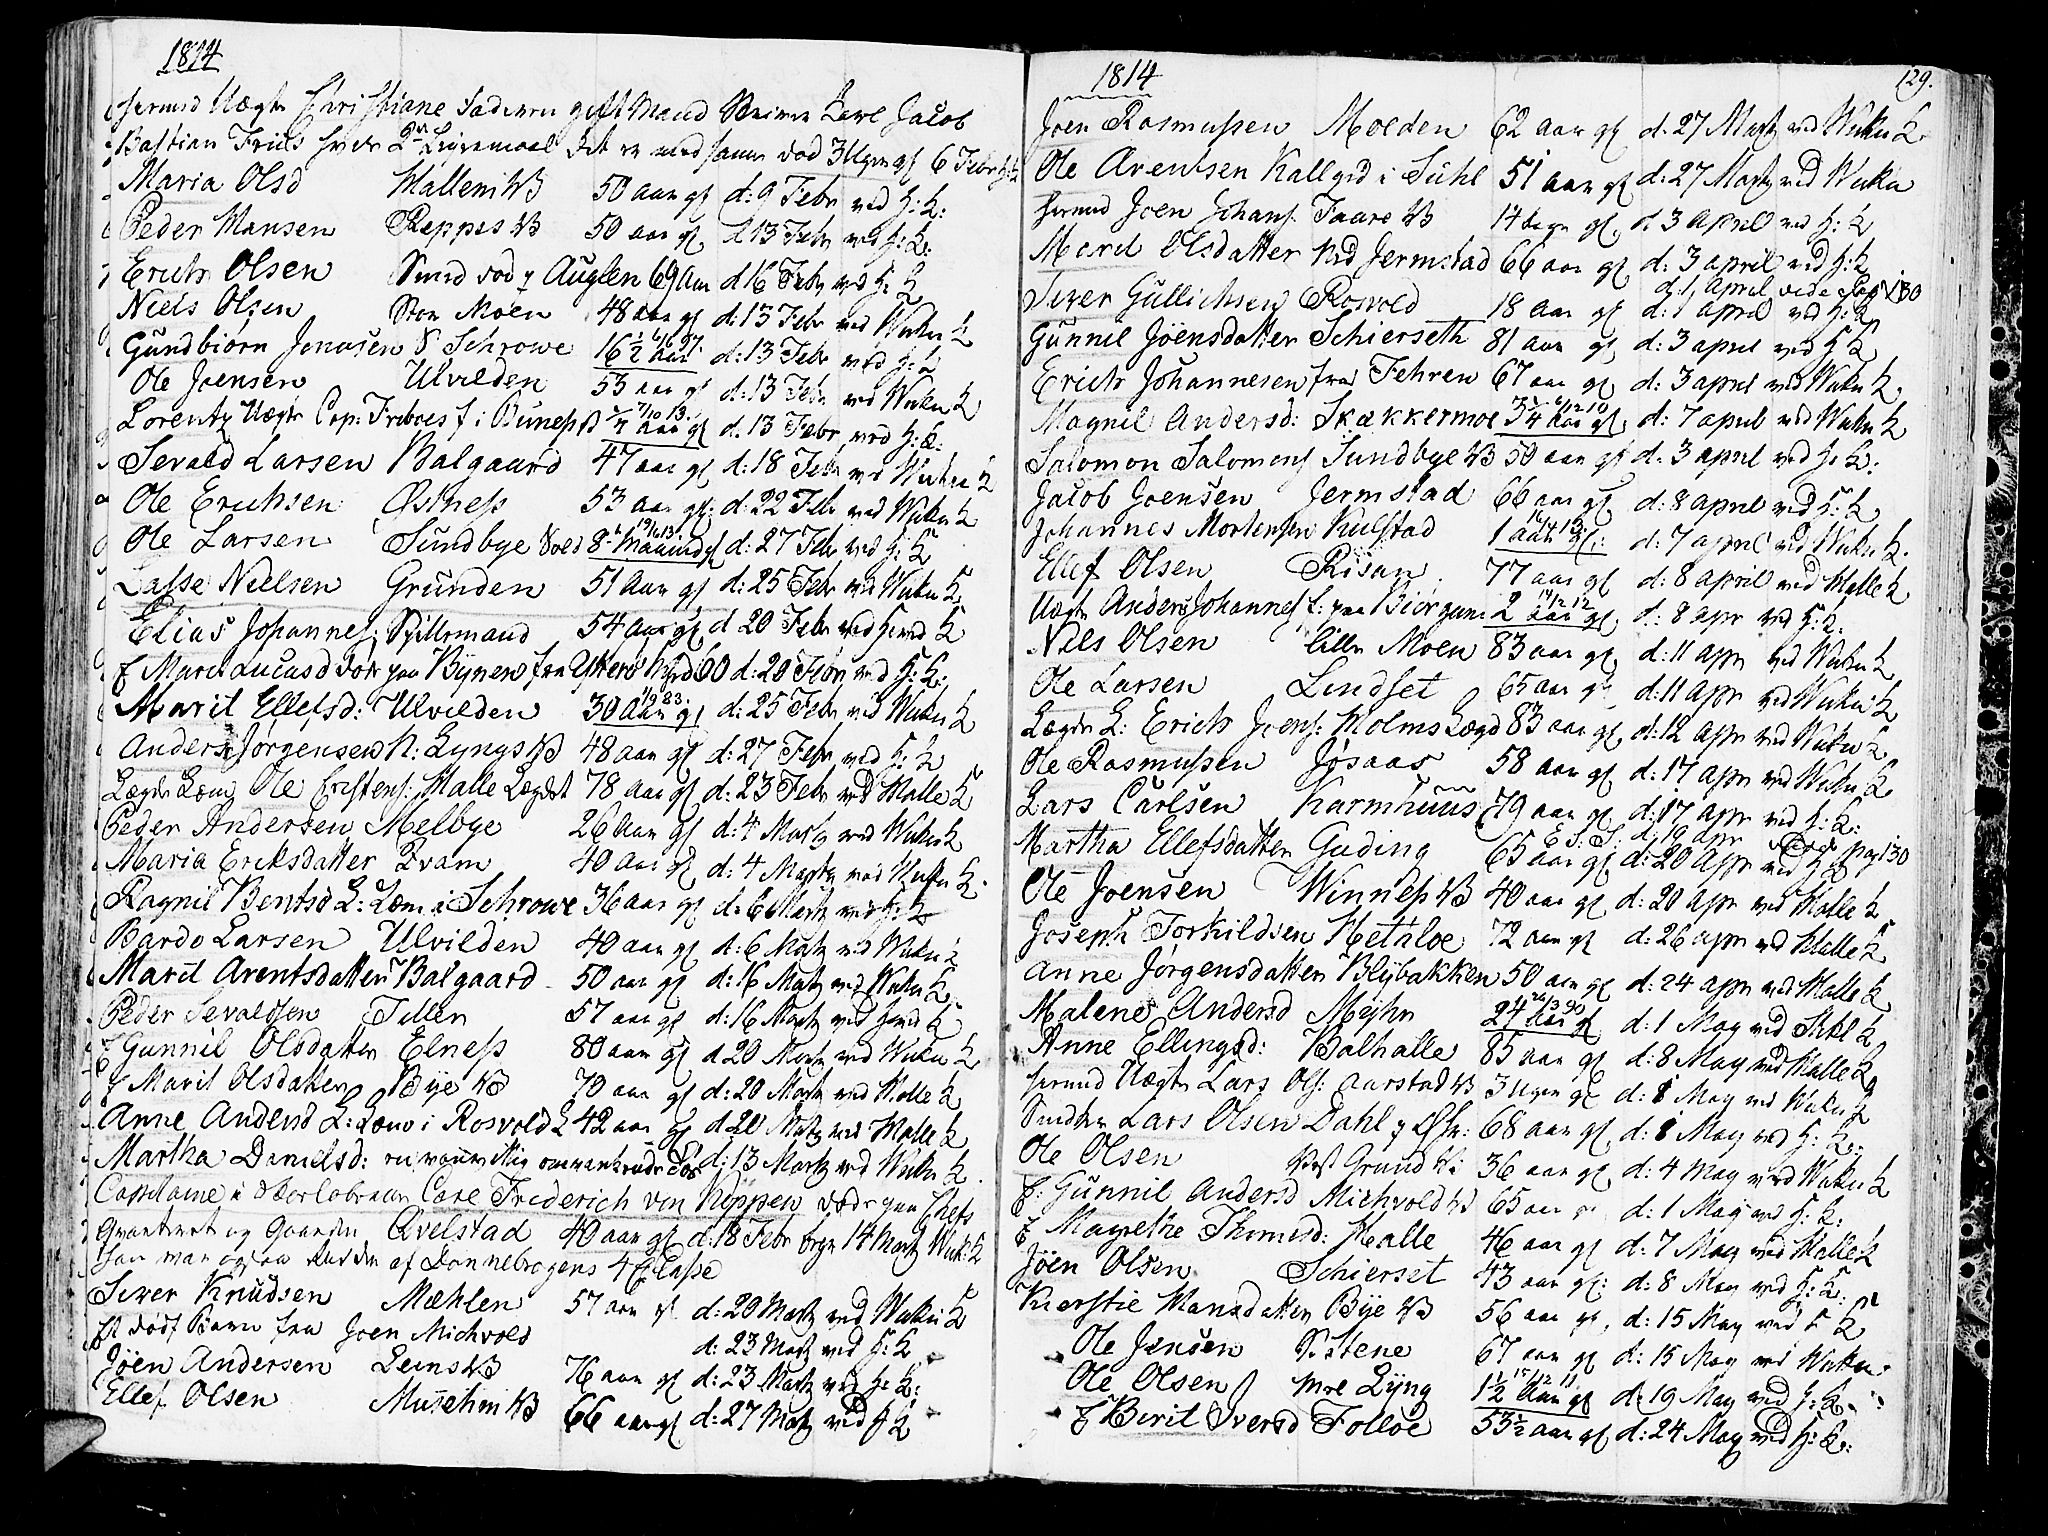 1814
Hermed Uægte Christiane Faderen gift Mand Carl Jacob
Bastian Friis hvis 2det Leiermaal det er med samme død 3 Uger gl 6 Febr H: K
Maria Olsd Halleni VB 50 aar gl d: 9 Febr ved H: K:
Peder Hansen Reppes VB 50 aar gl d 13 Febr ved H: K:
Erich Olsen Auglen 69 Aar d 16 Febr ved H: K
Niels Olsen Stor Moen 48 aar gl d: 13 Febr ved Wuku K
Gundbiørn Jonasen S Schrowe 16 1/2 Aar d: 13 Febr ved H: K
Ole Joensen Ulvilden 53 aar gl d: 13 Febr ved Wuku K
Lorentz Uægte Cap: Friboes f: i Bunes VB aar gl d. 13 Febr ved H: K:
Sevald Larsen Balgaard 47 aar gl d: 18 Febr ved Wuku K
Ole Erichsen Østness 53 aar gl: d: 22 Febr ved Wuku K
Ole Larsen Sundbye Vold 8 Maaneder d: 27 Febr ved H: K
Lasse Nielsen Grunden 51 Aar gl d: 25 Febr ved Wuku K
Elias Johannes: Spillemand 54 Aar gl d 20 Febr ved Hoved K
f Marit Lucasd død paa Bynes fra Ytterø 60 d: 20 Febr ved H: K:
Marit Ellefsd: Ulvilden 30 Aar gl d: 25 Febr ved Wuku K
Anders Jørgensen N: Lyngs VB 48 aar gl d: 27 Febr ved H: K
Lægds Lem Ole Cristens: Halle Lægdet 78 aar gl d: 23 Febr ved Halle K
Peder Andersen Melbye 26 Aar gl d: 4 Martz ved Wuku K
Maria Eriksdatter Qvam 40 Aar gl d: 4 Martz ved Wuku K.
Ragnil Bentsd L: Lem i Schrowe 36 aar gl d: 6 Martz ved H: K
Bardo Larsen Ulvilden 40 aar gl d: 6 Martz ved Wuku K
Marit Arentsdatter Balgaard 50 aar gl d: 16 Martz ved Wuku K
Peder Sevaldsen Tiller 57 aar gl d: 16 Martz ved Hoved K
f Gunnil Olsdatter Elness 80 aar gl d 20 Martz ved Wuku K
f Marit Olsdatter Bye VB 70 aar gl d: 20 Martz ved Halle K
Anne Andersd L: Lem i Rosvold L 42 aar gl d 20 Martz ved Halle K
Martha Danielsd: en omvankende d: 13 Martz ved Wuku K.
Capitaine i Carl Friderich von Køppen døde paa Chefs
Qvarteret og Gaarden Qvelstad 40 aar gl d: 18 Febr begr 14 Martz Wuk: K
han var ogsaa Ridder af Dannebrogens 4 Classe
Siver Knudsen Mæhlen 57 aar gl d: 20 Martz ved Wuku K
Et død f Barn fra Joen Michvold d: 23 Martz ved H: K
Jøen Andersen Leins VB 76 aar gl d: 23 Martz ved H: K:
Ellef Olsen VB 66 aar gl d: 27 Martz ved H K
1814 129.
Joen Rasmussen Molden 62 aar gl d. 27 Martz ved Wuku K.
Ole Arentsen Kallgrd i Suhl 51 aar gl d: 27 Martz ved Wuku
Hermed Joen Johans: Faare VB 14 dage gl. d 3 April ved H: K
Marit Olsdatter Jermstad 66 aar gl d: 3 april ved H: K
d: 1 April vide Pag 130
Siver Gullichsen Rosvold 18 aar gl d: 1 april ved H: K
Gunnil Jøensdatter Schierseth 81 aar gl d: 3 april ved H K
Erich Johannesen fra Fehren 67 aar gl d: 3 april ved Wuku K
Magnil Andersd: Skækkermoe 3/4 Aar gl d: 7 april ved Wuku K
Salomon Salomons Sundbye VB 50 aar gl d: 3 april ved H: K:
Jacob Joensen Jermstad 66 aar gl d: 8 april ved H: K
Johannes Mortensen Kulstad 1 aar gl: d: 7 april ved Wuku K.
Ellef Olsen Risan 77 aar gl d: 8 april ved Halle K
Uægte Anders Johannes f: paa Biørgum 2 Aar gl d: 8 apr ved H: K:
Niels Olsen lille Moen 83 aar gl d: 11 apr ved Wuku K
Ole Larsen Lindset 65 aar gl d: 11 apr ved Wuku K
Lægds L: Erich Joens: Holms Lægd 83 aar gl d: 12 apr ved Wuku K
Ole Rasmussen Jøsaas 58 aar gl d: 17 apr ved Wuku K
Lars Carlsen Karmhuus 79 aar gl d: 17 apr ved H: K:
E. S: S: d: 19 apr vide pag 130
Martha Ellefsdatter Guding 65 aar gl d: 20 apr ved H K
Ole Joensen Winness VB 40 aar gl d: 20 apr ved Halle K
Joseph Torkildsen Hetaloe 72 aar gl d: 26 apr ved Halle K
Anne Jørgensdatter Blybakken 50 aar gl d: 24 apr ved Halle K
Malene Andersd Mejhn 24 Aar gl d: 1 May ved Suhl K
Anne Ellingsd: Balhalle 85 aar gl d: 8 May ved Halle K
Hermed Uægte Lars Ols: Aarstad VB 3 Uger gl d: 8 May ved Wuku K
Lars Olsen Dahl 68 aar gl d: 8 May ved H: K:
Ole Olsen Vest Grund VB 36 aar gl d: 4 May ved Wuku K
f: Gunnil Andersd Michvold VB 65 aar d: 1 May ved H: K:
f Magrethe Thomesd: Halle 46 aar gl d: 7 May ved Halle K
Jöen Olsen Schierset 43 aar gl: d: 8 May ved H: K:
Kierstie Hansdatter Bye VB 56 aar gl, d: 15 May ved H K
Ole Jensen Stene 67 aar gl d: 15 May ved Wuku.
Ole Olsen Lyng 1 1/2 Aar gl d: 19 May ved H: K.
f Birit Iversd Folloe 53 1/2 aar gl d: 24 May ved H: K: